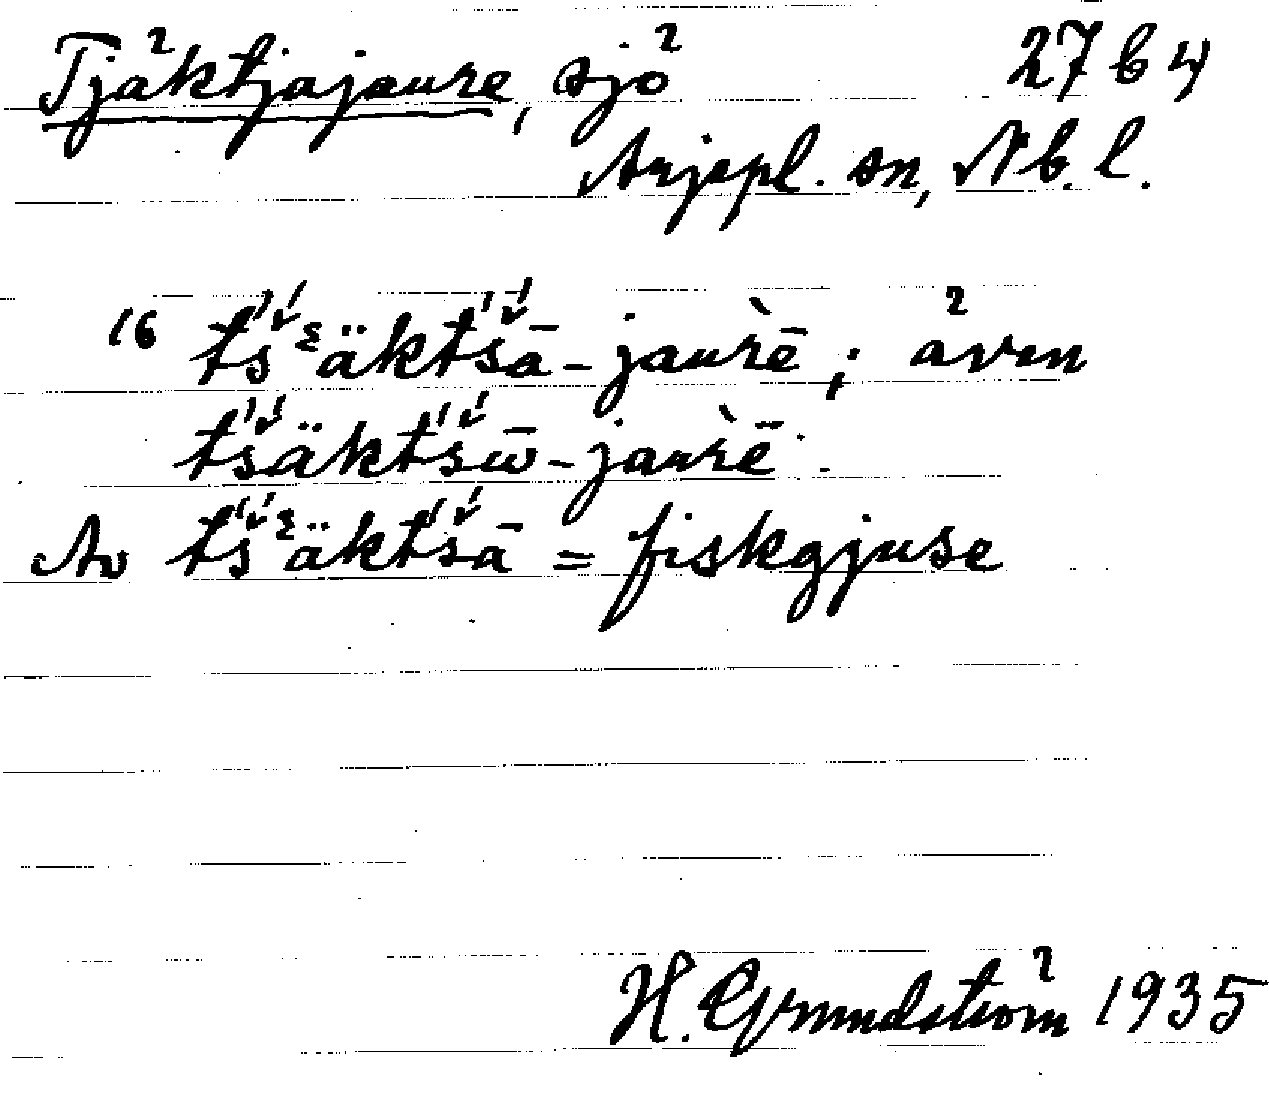 Tjäktjajaure, sjö 27 b 4
Arjepl. sn, Nb. l.
16 t́š́ᶓäkt́š́ā-jaurḕ; även
t́š́äkt́š́ū-jaurḕ.
Av t́š́ᶓäkt́š́ā = fiskgjuse
H. Grundström 1935